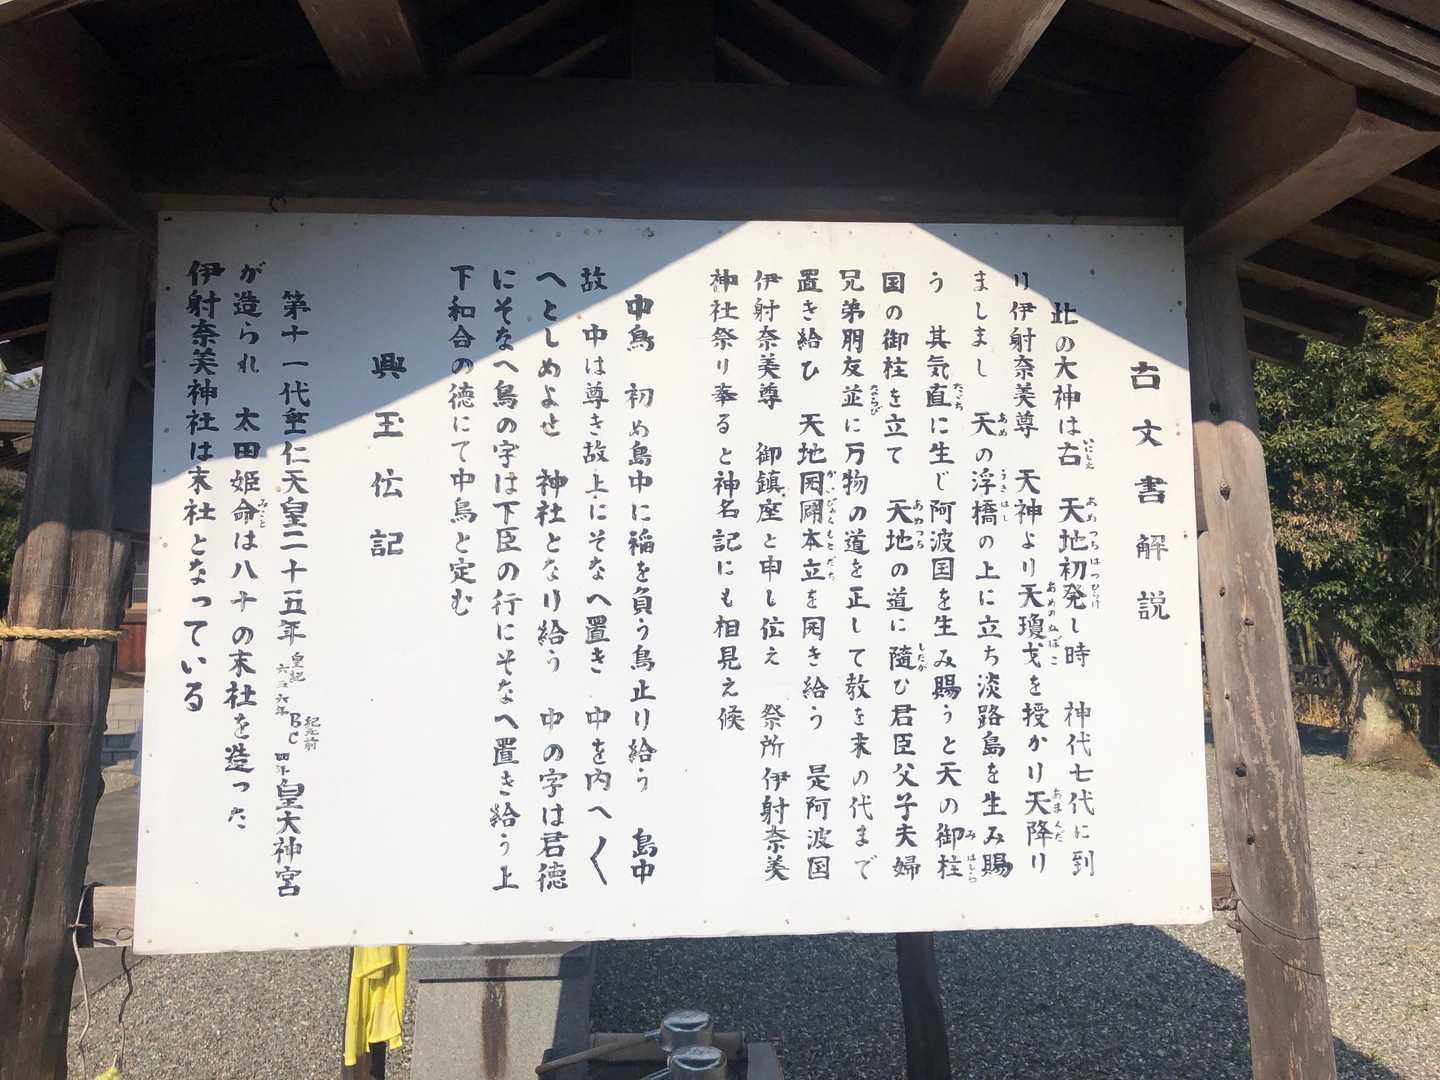 古文書解説
此の大神は右 天地初発し時 神代七代に到
り伊射奈美尊 天神より天瓊戈を授かり天降り
ましまし 天の浮橋の上に立ち淡路島を生み賜
う 其気直に生じ阿波国を生み賜うと天の御柱
国の御柱を立て 天地の道に隨ひ君臣父子夫婦
兄弟朋友並に万物の道を正して教を末の代まで
置き給ひ 天地開闢本立を開き給う 是阿波国
伊射奈美尊 御鎮座と申し伝え 祭所伊射奈美
神社祭り奉ると神名記にも相見え候
中鳥 初め島中に稲を負う鳥止り給う 島中
故 中は尊き故上にそなへ置き 中を内へ〱
へとしめよせ 神社となり給う 中の字は君徳
にそなへ鳥の字は下臣の行にそなへ置き給う上
下和合の徳にて中鳥と定む
興玉伝記
第十一代垂仁天皇二十五年 皇紀六五六年 BC 紀元前四年 皇大神宮
が造られ 太田姫命は八十の末社を造った
伊射奈美神社は末社となっている